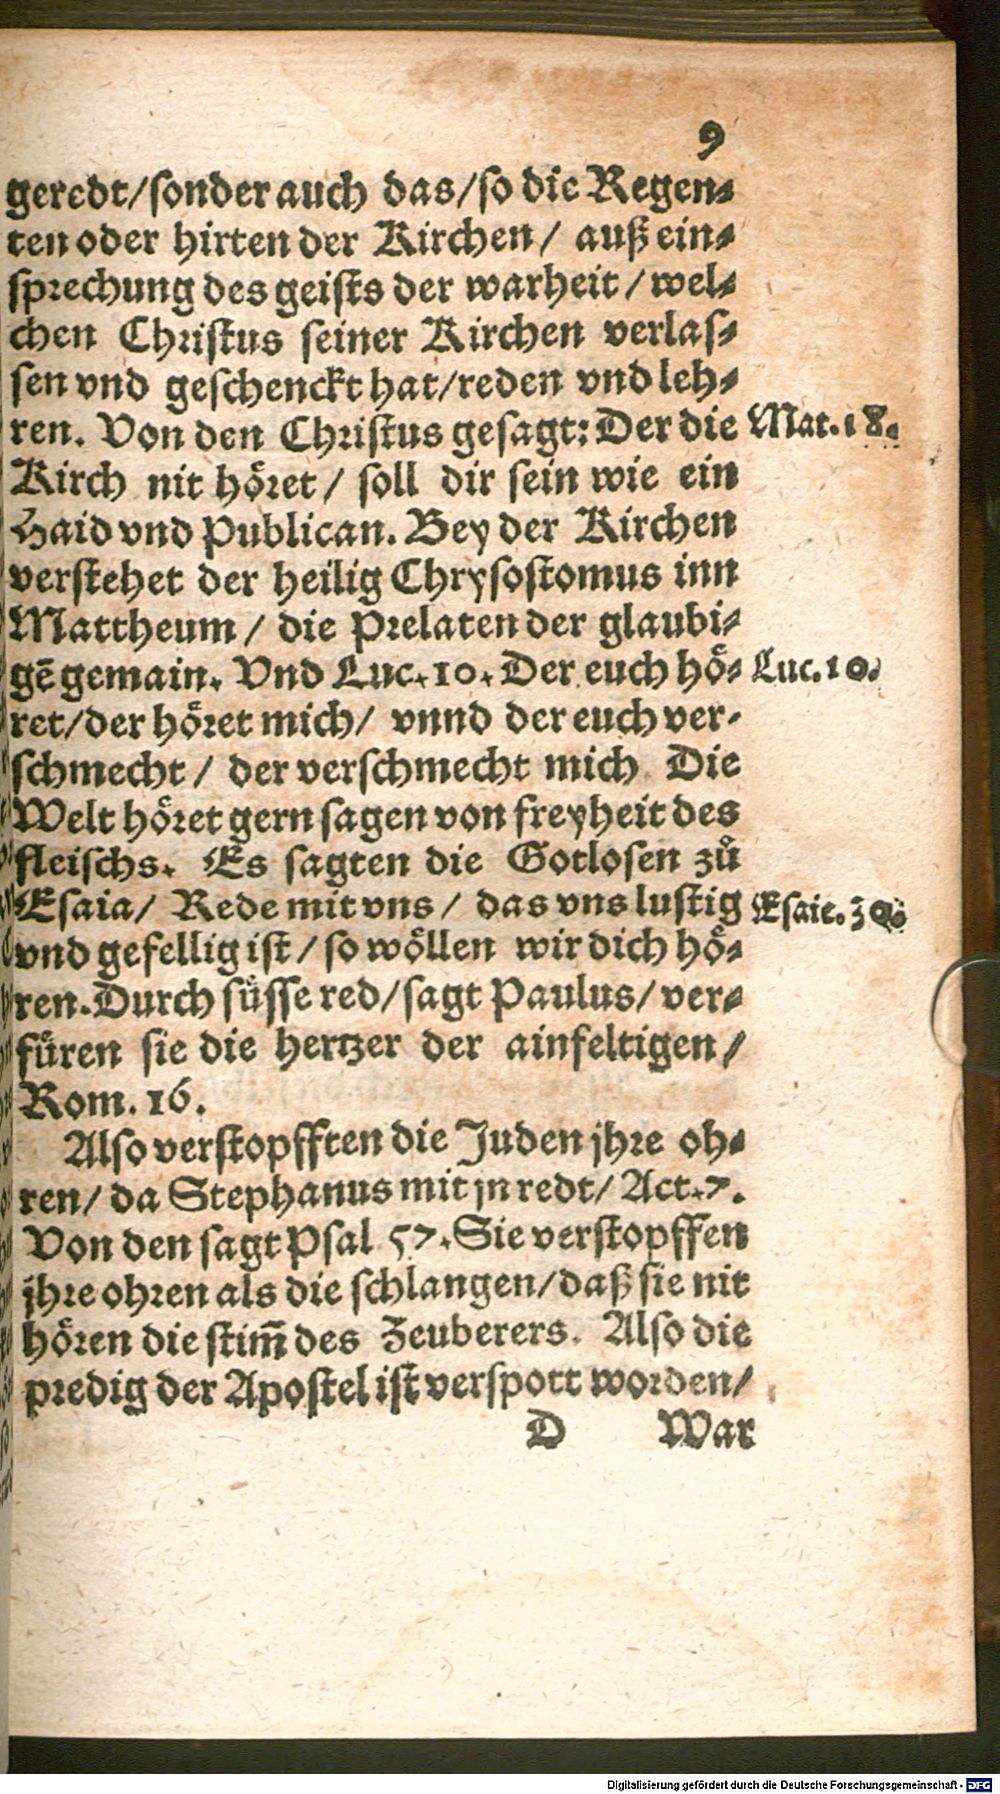 9
geredt/ſonder auch das/ſo die Regen⸗
ten oder hirten der Kirchen/ auß ein⸗
ſprechung des geiſts der warheit/wel⸗
chen Chriſtus ſeiner Kirchen verlaſ⸗
ſen vnd geſchenckt hat/reden vnd leh⸗
ren. Von den Chriſtus geſagt: Der die Mat.18.
Kirch nit höret/ ſoll dir ſein wie ein
Haid vnd Publican. Bey der Kirchen
verſtehet der heilig Chryſoſtomus inn
Mattheum/ die Prelaten der glaubi⸗
gē gemain. Vnd Luc.10. Der euch hö⸗ Luc.10.
ret/der höret mich/ vnnd der euch ver⸗
ſchmecht/ der verſchmecht mich Die
Welt höret gern ſagen von freyheit des
fleiſchs. Es ſagten die Gotloſen zů
Eſaia/ Rede mit vns/ das vns luſtig Eſaie.30
vnd gefellig iſt/ſo wöllen wir dich hö⸗
ren. Durch ſüſſe red/ſagt Paulus/ ver⸗
füren ſie die hertzer der ainfeltigen/
Rom. 16.
Alſo verſtopfften die Juden jhre oh⸗
ren/ da Stephanus mit jn redt/ Act.7.
Von den ſagt Pſal 57. Sie verſtopffen
jhre ohren als die ſchlangen/daß ſie nit
hören die ſtim̄ des Zeuberers. Alſo die
predig der Apoſtel iſt verſpott worden/
D War
Digitalisierung gefördert durch die Deutsche Forschungsgemeinschaft - DFG